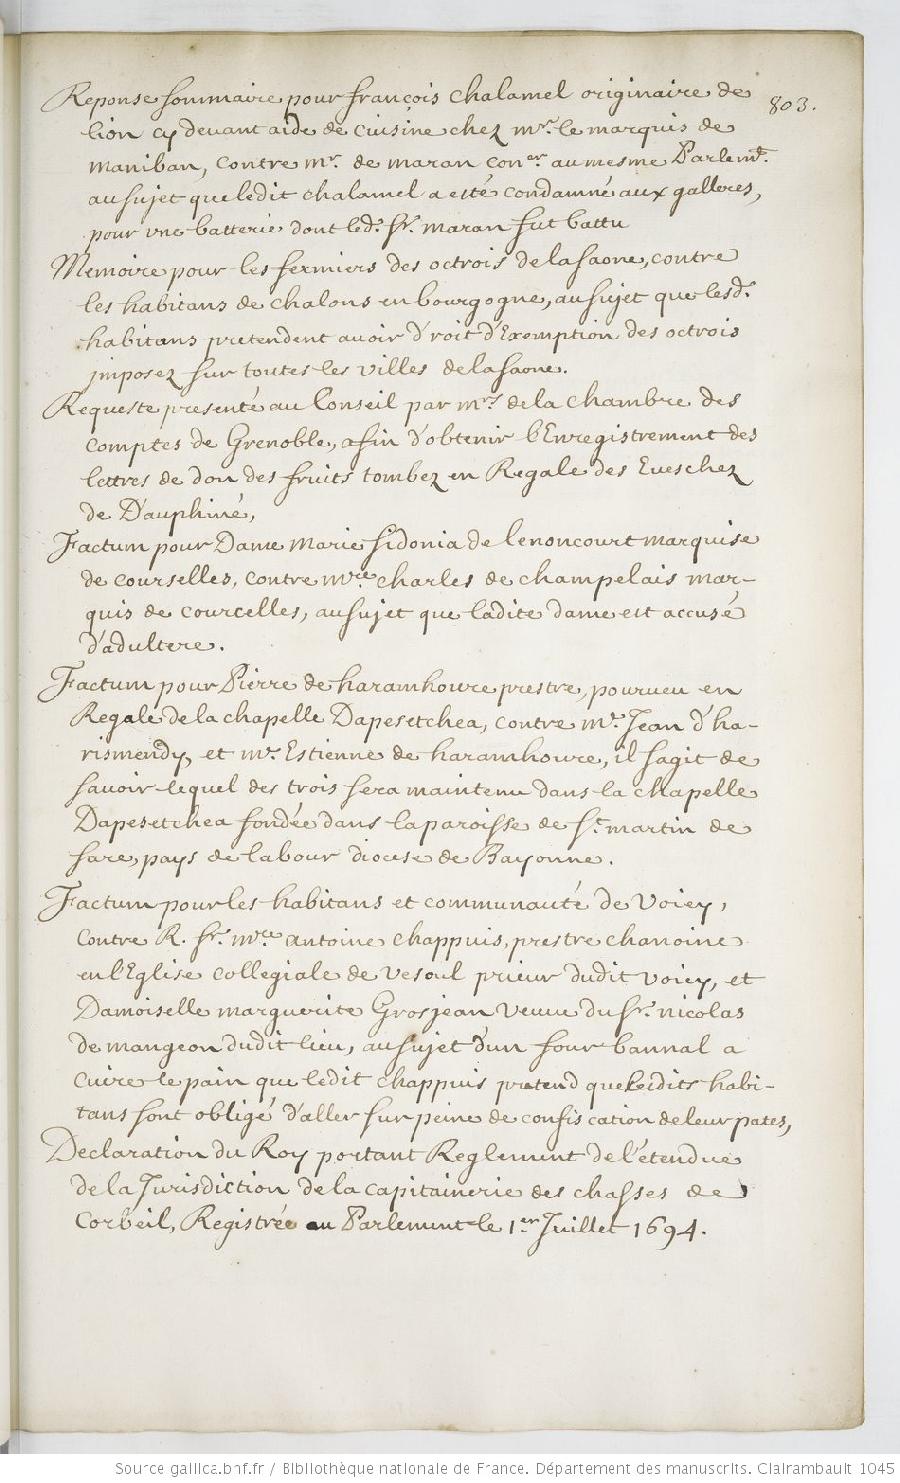 803.
Reponse sommaire pour françois chalamel originaire de
lion cy devant aide de cuisine chez mr. le marquis de
Maniban, contre mr. de maran coner. au mesme Parlemt.
au sujet que ledit chalamel a esté condamné aux galleres,
pour une batterie dont led. sr. maran fut battu
Memoire pour les fermiers des octrois de la saone, contre
les habitans de chalons en bourgogne, au sujet que lesd.
habitans pretendent avoir droit d'Exemption des octrois
imposez sur toutes les villes de la saone.
Requeste presenté au Conseil par mrs. de la chambre des
comptes de Grenoble, afin d'obtenir l'Enregistrement des
lettres de don des fruits tombez en Regale des Eveschez
de Dauphiné,
Factum pour Dame Marie sidonia de lenoncourt marquise
de courselles, contre mre. charles de champelais mar-
quis de courcelles, au sujet que ladite dame est accusé
d'adultere.
Factum pour Pierre de haramhoure prestre, pourveu en
Regale de la chapelle Dapesetchea, contre mr. Jean d'ha-
rismendy, et mr. Estienne de haramhoure, il sagit de
savoir lequel des trois sera maintenu dans la chapelle
Dapesetchea fondée dans la paroisse de st. martin de
sare, pays de labour diocese de Bayonne.
Factum pour les habitans et communauté de Voiey,
contre R. sr. mre antoine chappuis, prestre chanoine
en l'Eglise collegiale de vesoul prieur dudit voiey, et
Damoiselle marguerite Grosjean veuve du sr. nicolas
de mangeon dudit lieu, au sujet d'un four bannal a
cuire le pain que ledit chappuis pretend que lesdits habi-
tans sont obligé d'aller sur peine de confiscation de leur pates,
Declaration du Roy portant Reglement de l'étendue
de la Jurisdiction de la capitainerie des chasses de
Corbeil, Registrée au Parlement le 1er Juillet 1694.
Source gallica.bnf.fr / Bibliothèque nationale de France. Département des manuscrits. Clairambault 1045